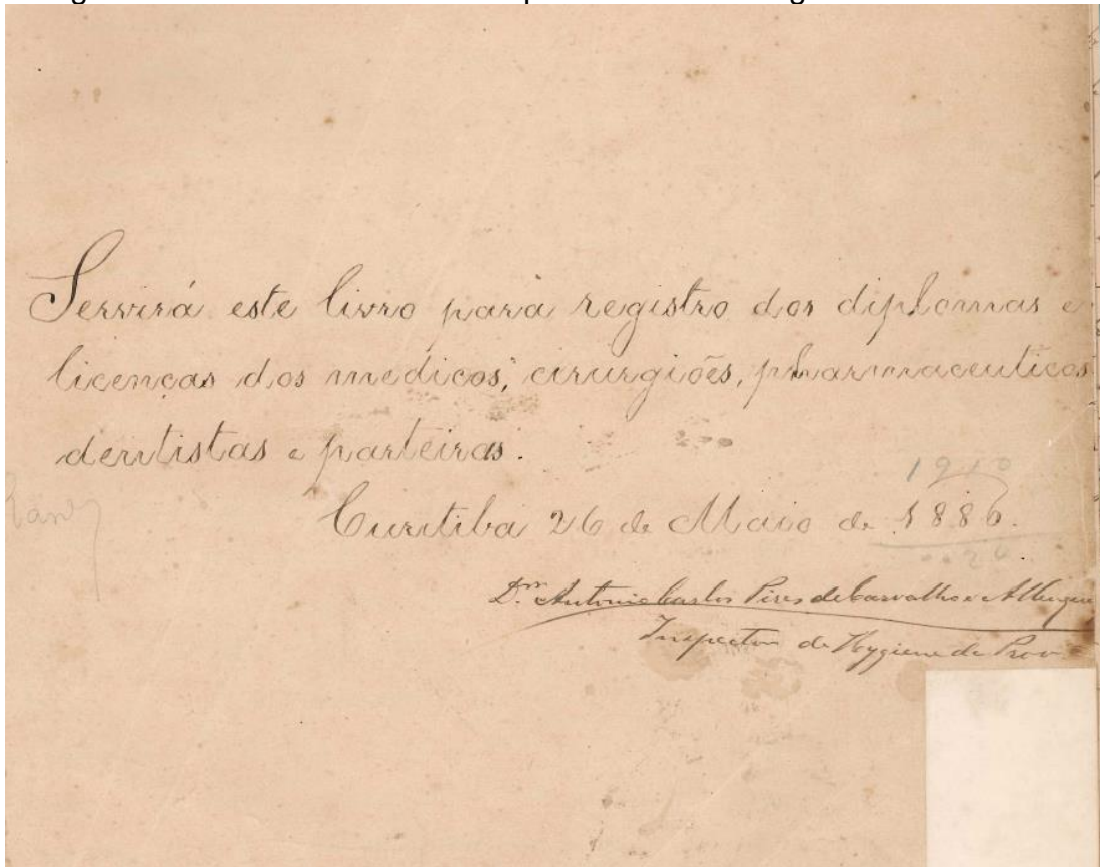 Servirá este livro para registro dos diplomas e
licenças dos medicos, cirurgiões, pharmaceuticos
dentistas e parteiras.
1910
Curitiba 26 de Maio de 1886.
24
Dr. Antonio Carlos Pires de Carvalho e Albuquer
Inspector de Hygiene da Prov